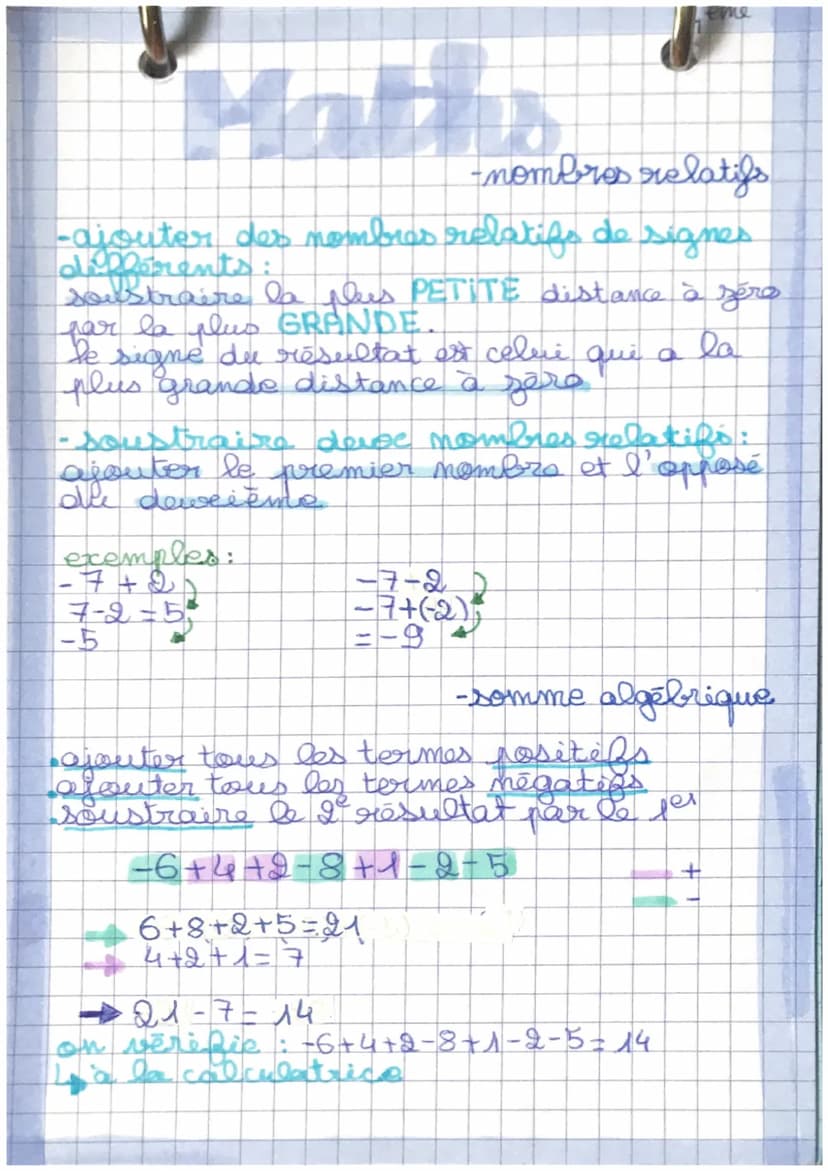 ème
Maths
-nombres relatifs
-ajouter des nombres relatifs de signes
différents :
soustraire la plus PETITE distance à zéro
par la plus GRANDE.
le signe du résultat est celui qui a la
plus grande distance à zéro
-soustraire deux nombres relatifs :
ajouter le premier nombre et l'opposé
du deuxième
exemples :
-7+2
7-2=5
-5
-7-2
-7+(-2)
=-9
-somme algébrique
.ajouter tous les termes positifs
.ajouter tous les termes négatifs
.soustraire le 2e résultat par le 1er
-6+4+2-8+1-2-5
+
-
→ 6+8+2+5=21
→ 4+2+1=7
→ 21-7=14
on vérifie : -6+4+2-8+1-2-5=14
↳ à la calculatrice